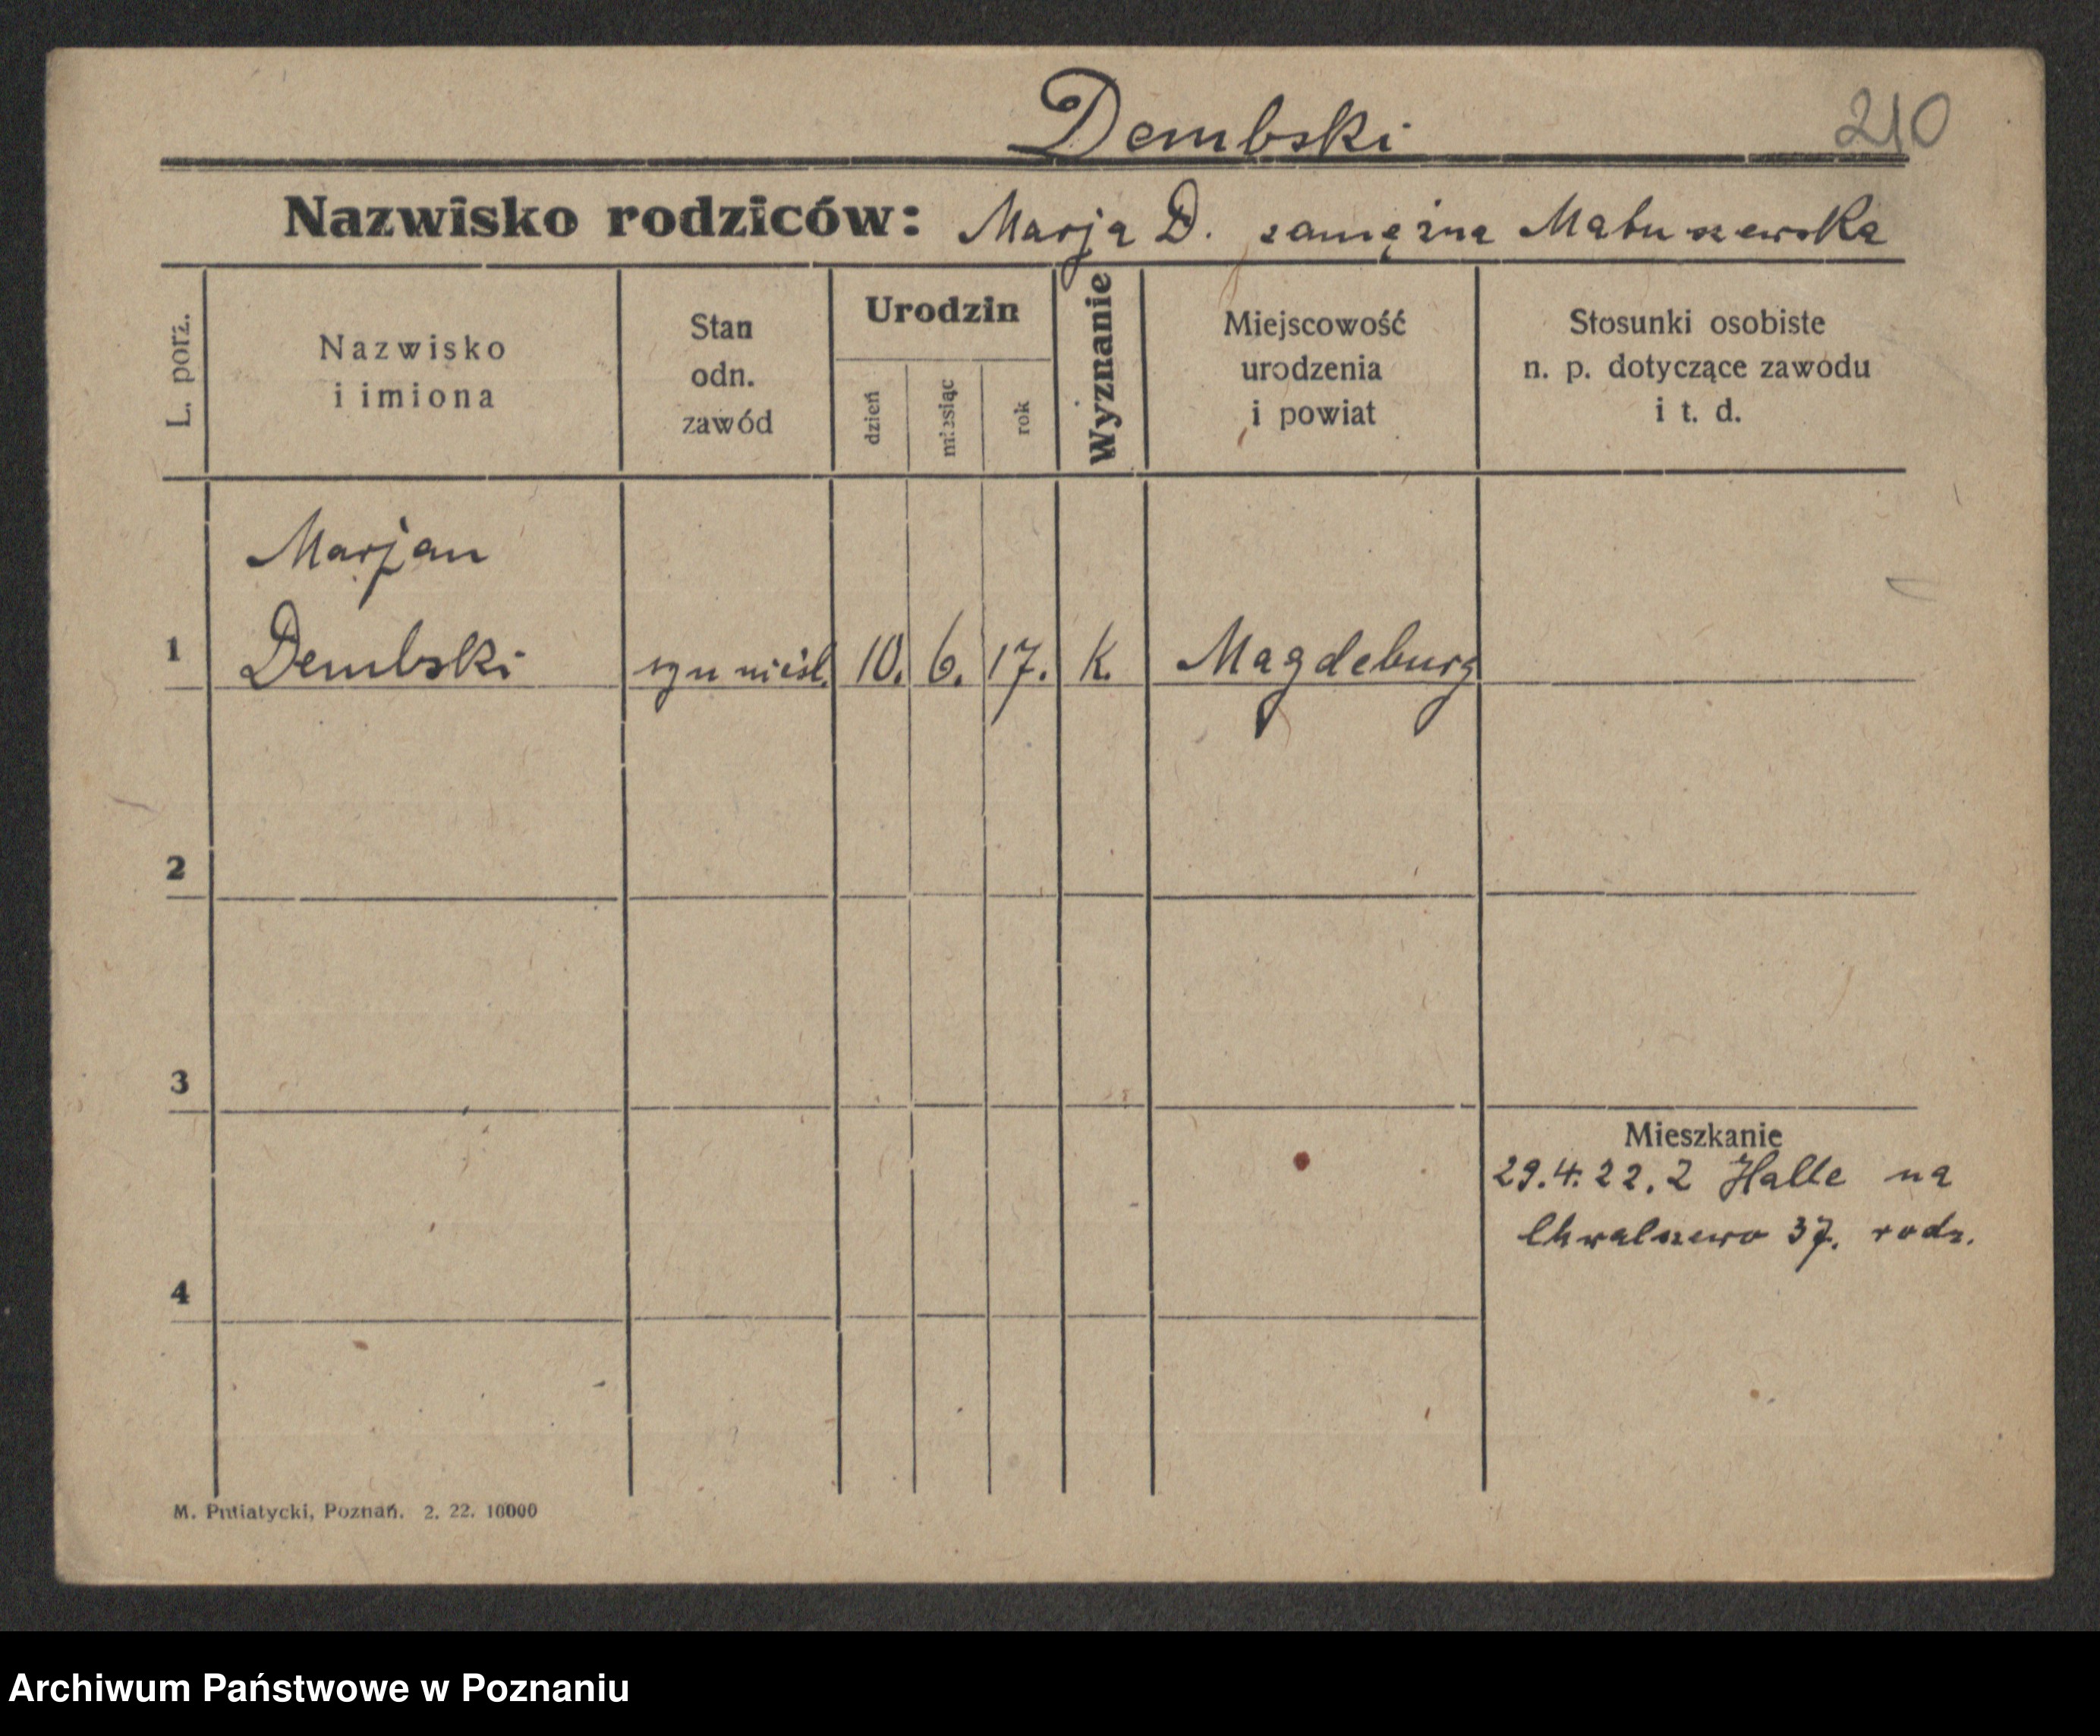 Dembski 210
Nazwisko rodziców: Marja D. zamężna Matuszewska
L. porz.
Nazwisko
i imiona
Stan
odn.
zawód
Urodzin
dzień
miesiąc
rok
Wyznanie
Miejscowość
urodzenia
i powiat
Stosunki osobiste
n. p. dotyczące zawodu
i t. d.
Marjan
1 Dembski syn nieśl. 10. 6. 17. k. Magdeburg
2
3
Mieszkanie
29.4.22. Z Halle na
Chwalszewo 37. rodz.
4
M. Putiatycki, Poznań. 2. 22. 10000
Archiwum Państwowe w Poznaniu